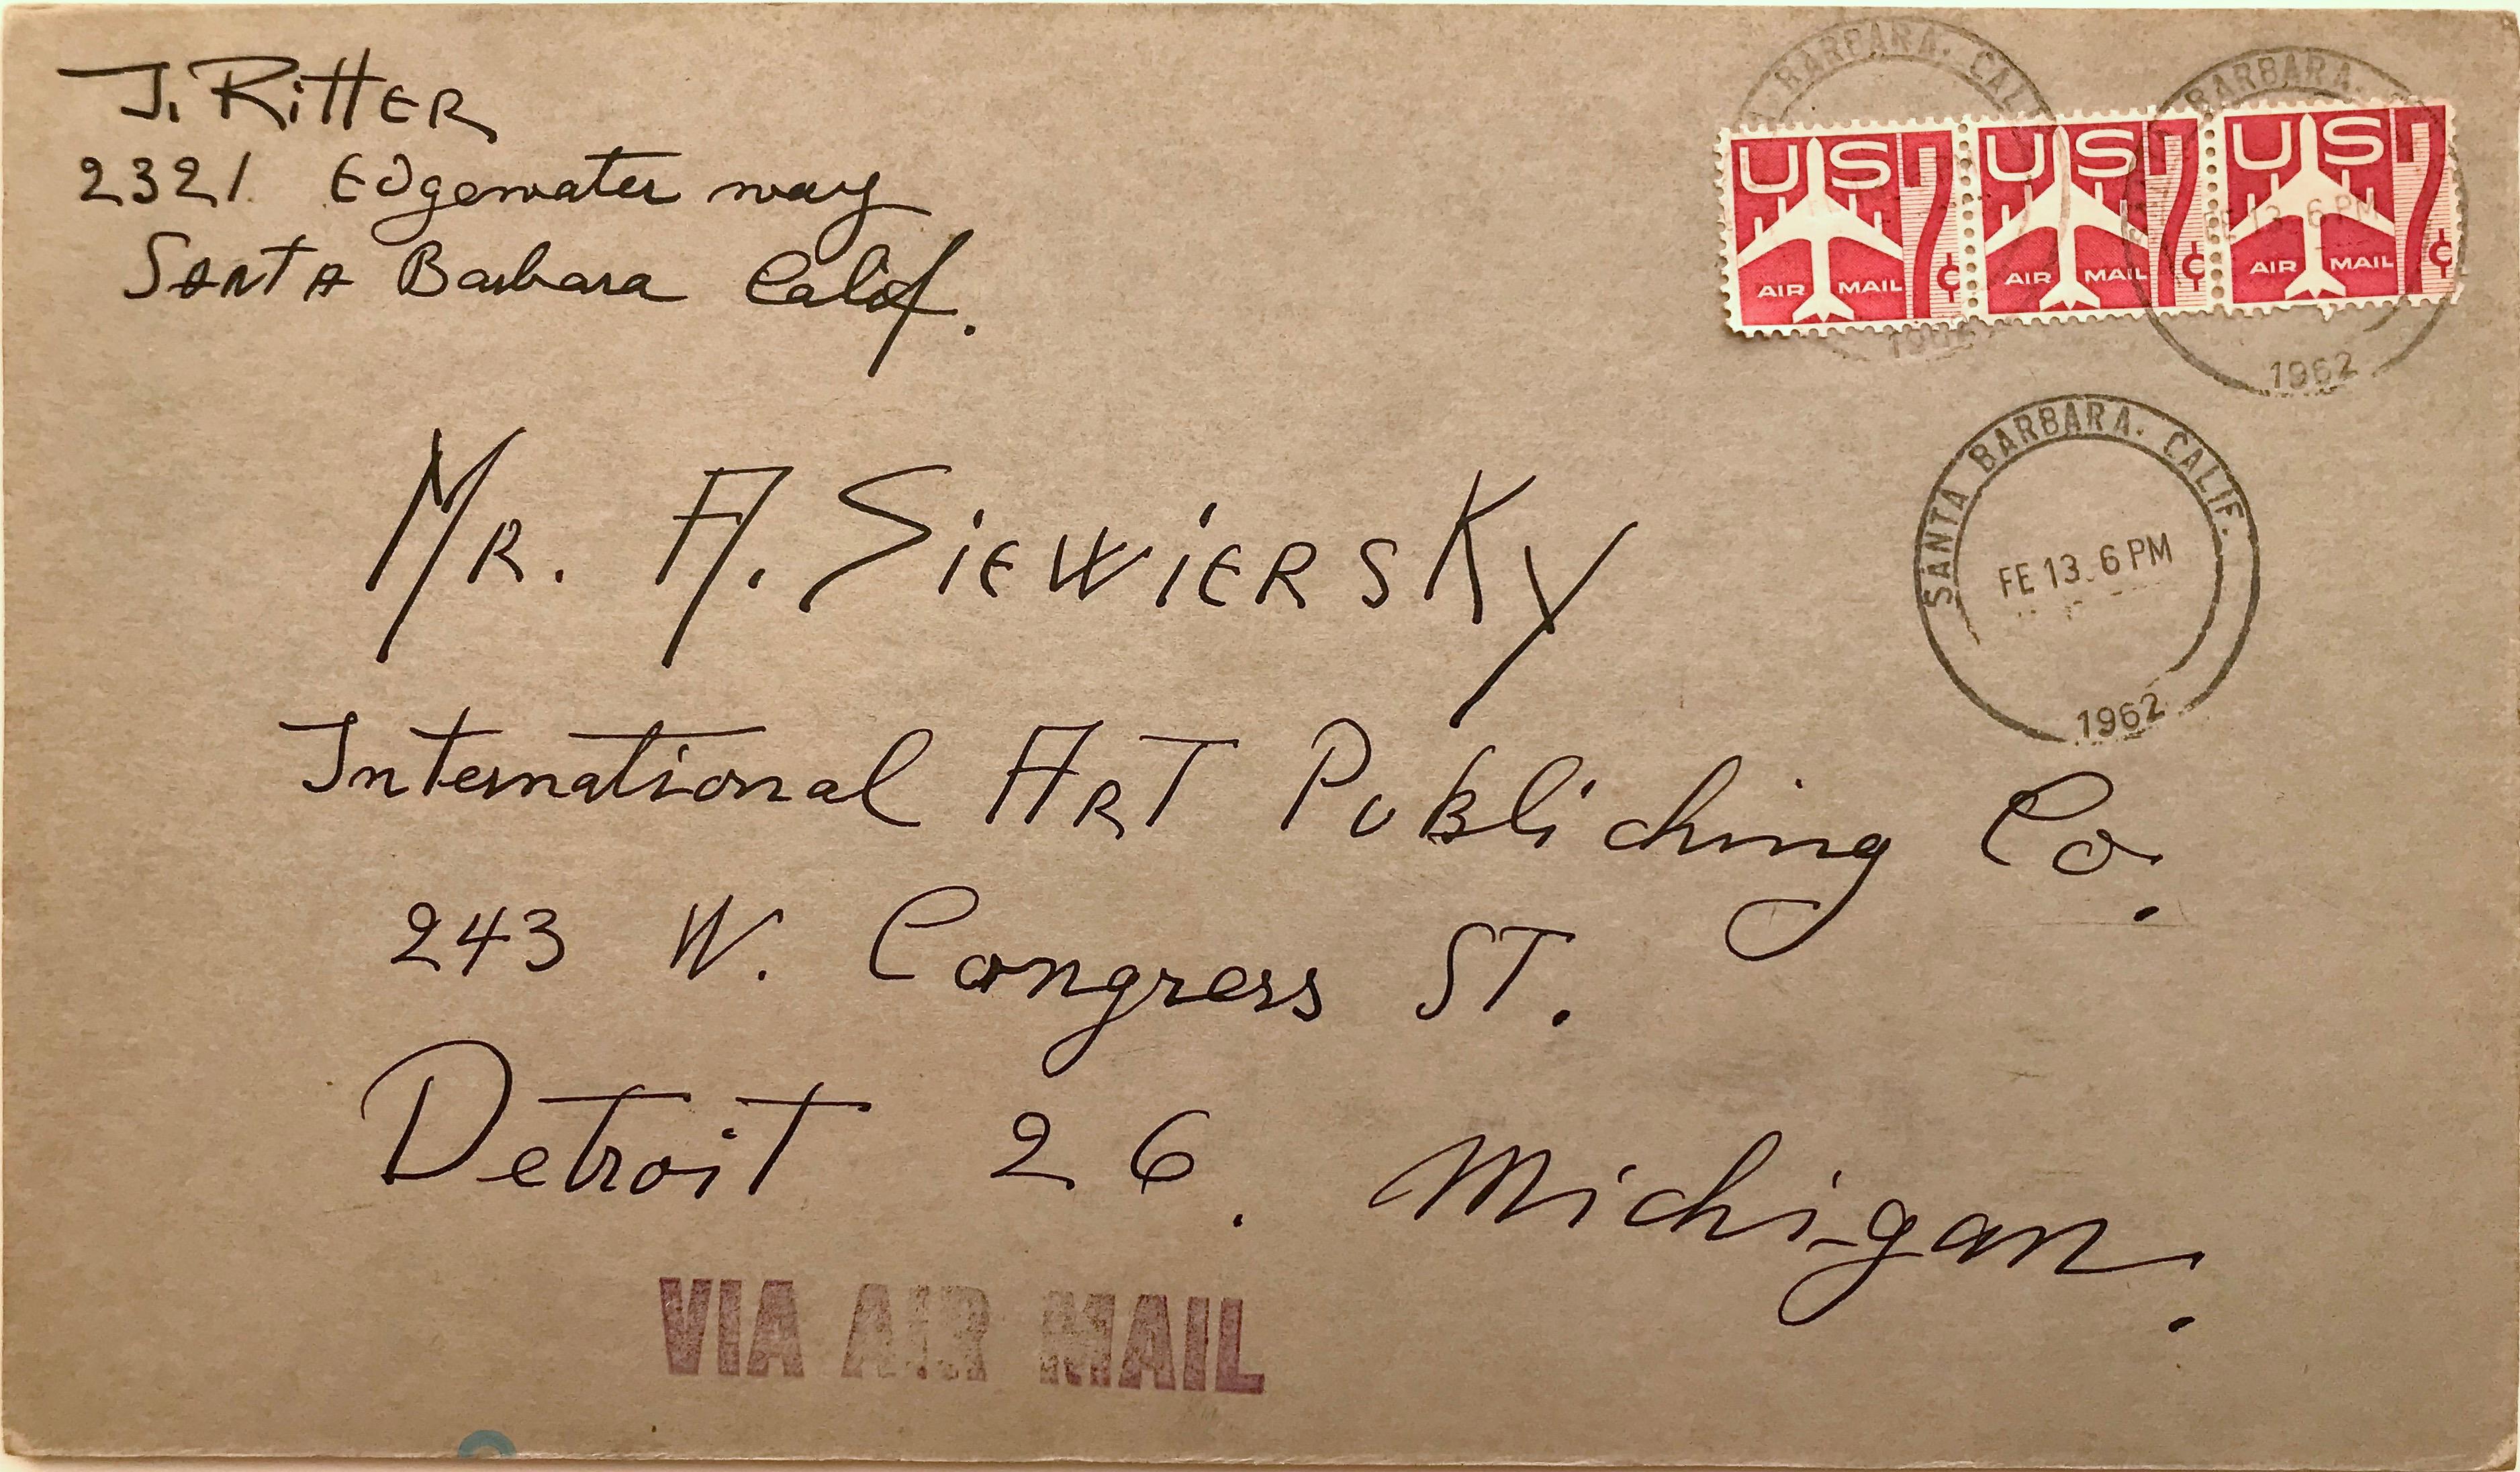 J. RittER
2321 Edgewater way
SANTA Barbara Calif.
BARBARA. CALI
1962
BARBARA.
FE 13. 6 PM
1962
US 7¢
AIR MAIL
US 7¢
AIR MAIL
US 7¢
AIR MAIL
SANTA BARBARA. CALIF.
FE 13. 6 PM
1962
MR. A. SiEWiERSKY
International ART Publiching Co.
243 W. Congress ST.
Detroit 26. Michigan.
VIA AIR MAIL